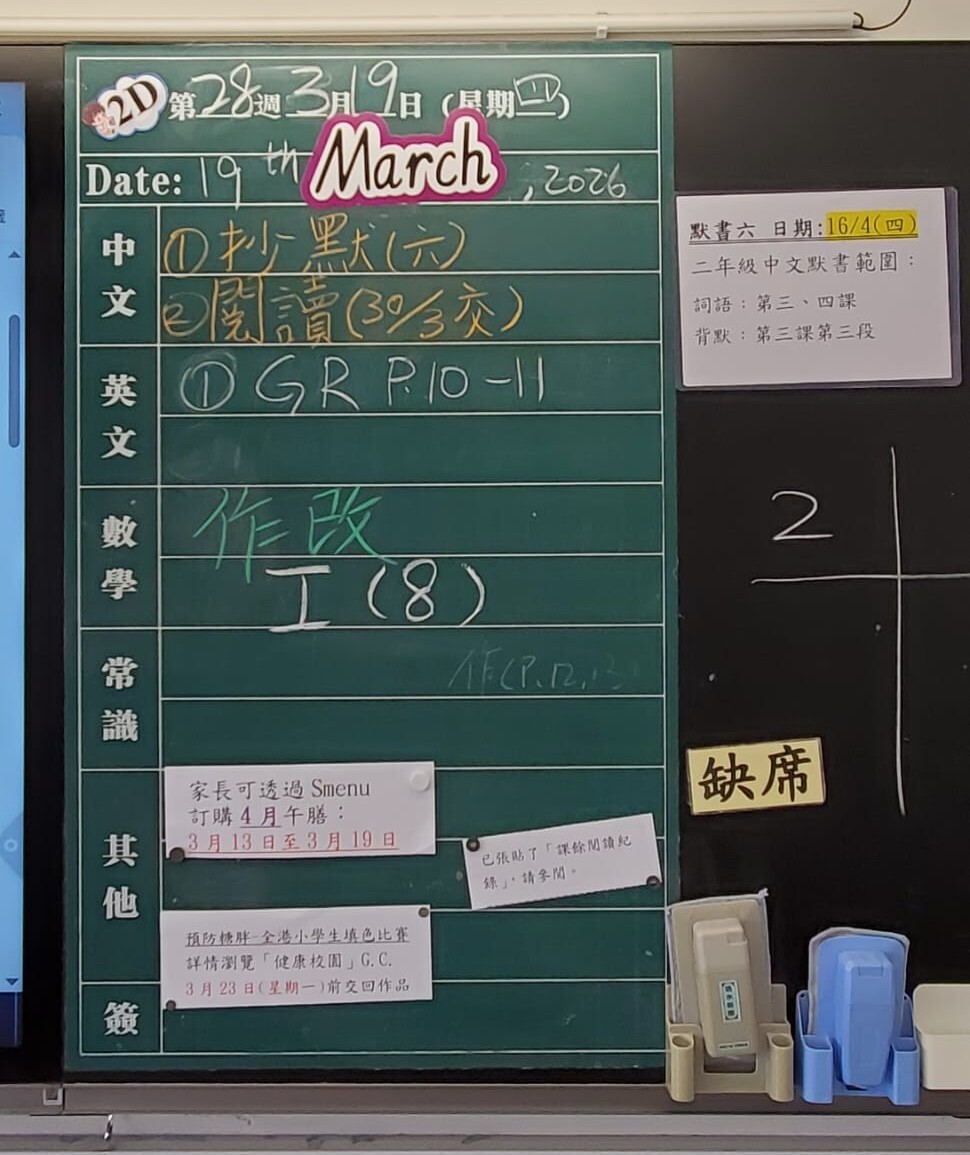 2D 第28週3月19日(星期四)
Date: 19th March, 2026
中文
①抄默(六)
②閱讀(30/3交)
英文
① GR P.10-11
數學
作改
工(8)
常識
作(P.12,13)
其他
家長可透過 Smenu
訂購 4 月午膳：
3 月 13 日至 3 月 19 日
已張貼了「課餘閱讀紀
錄」，請參閱。
預防糖胖-全港小學生填色比賽
詳情瀏覽「健康校園」G.C.
3 月 23 日(星期一)前交回作品
簽
默書六 日期:16/4(四)
二年級中文默書範圍：
詞語：第三、四課
背默：第三課第三段
2
缺席